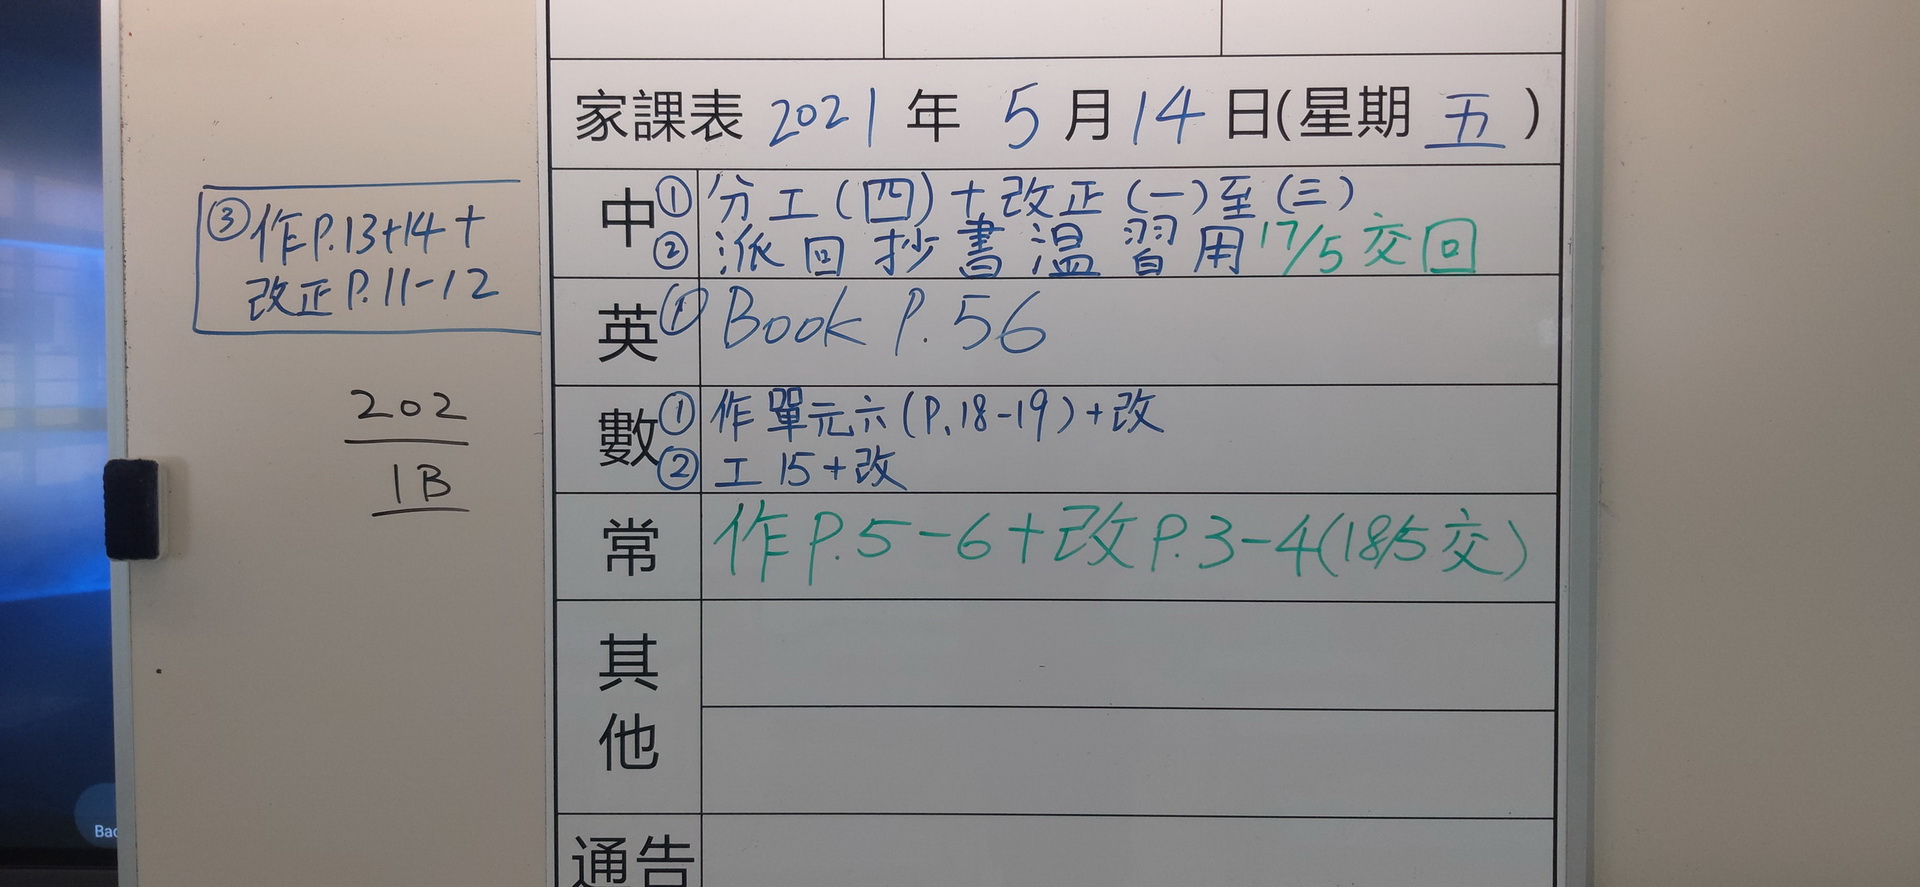 家課表 2021 年 5 月 14 日(星期 五 )
中 ① 分工(四)+改正(一)至(三)
② 派回抄書溫習用 17/5 交回
③ 作P.13+14+
改正P.11-12
英 ① Book P.56
數 ① 作單元六(P.18-19)+改
② 工15+改
常 作P.5-6+改P.3-4(18/5交)
其他
通告
202
1B
Bac